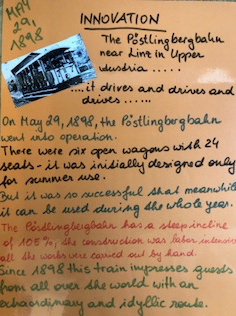 MAY
29,
1898
INNOVATION
The Pöstlingbergbahn
near Linz in Upper
Austria .....
....it drives and drives and
drives ......
On May 29, 1898, the Pöstlingbergbahn
went into operation.
There were six open wagons with 24
seats - it was initially designed only
for summer use.
But it was so successful that meanwhile
it can be used during the whole year.
The Pöstlingbergbahn has a steep incline
of 105%, the construction was labor intensive
all the works were carried out by hand.
Since 1898 this train impresses guests
from all over the world with an
extraordinary and idyllic route.